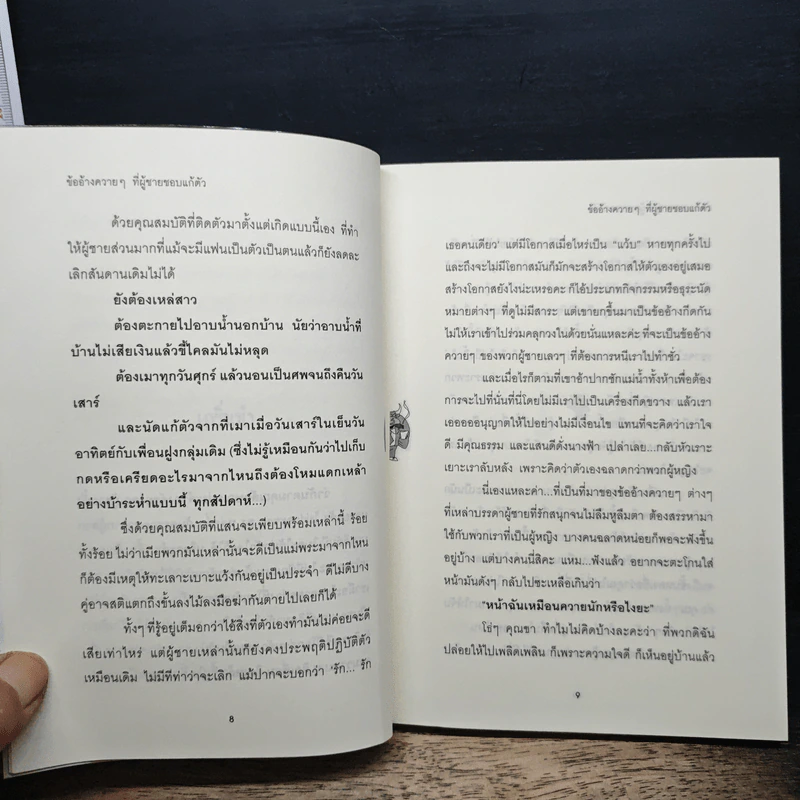 ข้ออ้างควายๆ ที่ผู้ชายชอบแก้ตัว
ด้วยคุณสมบัติที่ติดตัวมาตั้งแต่เกิดแบบนี้เอง ที่ทำ
ให้ผู้ชายส่วนมากที่แม้จะมีแฟนเป็นตัวเป็นตนแล้วก็ยังลดละ
เลิกสันดานเดิมไม่ได้
ยังต้องเหล่สาว
ต้องตะกายไปอาบน้ำนอกบ้าน นัยว่าอาบน้ำที่
บ้านไม่เสียเงินแล้วขี้ไคลมันไม่หลุด
ต้องเมาทุกวันศุกร์ แล้วนอนเป็นศพจนถึงคืนวัน
เสาร์
และนัดแก้ตัวจากที่เมาเมื่อวันเสาร์ในเย็นวัน
อาทิตย์กับเพื่อนฝูงกลุ่มเดิม (ซึ่งไม่รู้เหมือนกันว่าไปเก็บ
กดหรือเครียดอะไรมาจากไหนถึงต้องโหมแดกเหล้า
อย่างบ้าระห่ำแบบนี้ ทุกสัปดาห์...)
ซึ่งด้วยคุณสมบัติที่แสนจะเพียบพร้อมเหล่านี้ ร้อย
ทั้งร้อย ไม่ว่าเมียพวกมันเหล่านั้นจะดีเป็นแม่พระมาจากไหน
ก็ต้องมีเหตุให้ทะเลาะเบาะแว้งกันอยู่เป็นประจำ ดีไม่ดีบาง
คู่อาจสติแตกถึงขั้นลงไม้ลงมือฆ่ากันตายไปเลยก็ได้
ทั้งๆ ที่รู้อยู่เต็มอกว่าไอ้สิ่งที่ตัวเองทำมันไม่ค่อยจะดี
เสียเท่าไหร่ แต่ผู้ชายเหล่านั้นก็ยังคงประพฤติปฏิบัติตัว
เหมือนเดิม ไม่มีที่ท่าว่าจะเลิก แม้ปากจะบอกว่า 'รัก... รัก
8
ข้ออ้างควายๆ ที่ผู้ชายชอบแก้ตัว
เธอคนเดียว' แต่มีโอกาสเมื่อไหร่เป็น "แว้บ" หายทุกครั้งไป
และถึงจะไม่มีโอกาสมันก็มักจะสร้างโอกาสให้ตัวเองอยู่เสมอ
สร้างโอกาสยังไงน่ะเหรอคะ ก็ไอ้ประเภทกิจกรรมหรือธุระนัด
หมายต่างๆ ที่ดูไม่มีสาระ แต่เขายกขึ้นมาเป็นข้ออ้างกีดกัน
ไม่ให้เราเข้าไปร่วมคลุกวงในด้วยนั่นแหละค่ะ ที่จะเป็นข้ออ้าง
ควายๆ ของพวกผู้ชายเลวๆ ที่ต้องการหนีเราไปทำชั่ว
และเมื่อไรก็ตามที่เขาอ้าปากชักแม่น้ำทั้งห้าเพื่อต้อง
การจะไปที่นั่นที่นี่โดยไม่มีเราไปเป็นเครื่องกีดขวาง แล้วเรา
เออออออนุญาตให้ไปอย่างไม่มีเงื่อนไข แทนที่จะคิดว่าเราใจ
ดี มีคุณธรรม และแสนดีดั่งนางฟ้า เปล่าเลย...กลับหัวเราะ
เยาะเราลับหลัง เพราะคิดว่าตัวเองฉลาดกว่าพวกผู้หญิง
นี่เองแหละค่า...ที่เป็นที่มาของข้ออ้างควายๆ ต่างๆ
ที่เหล่าบรรดาผู้ชายที่รักสนุกจนไม่ลืมหูลืมตา ต้องสรรหามา
ใช้กับพวกเราที่เป็นผู้หญิง บางคนฉลาดหน่อยก็พอจะฟังขึ้น
อยู่บ้าง แต่บางคนนี่สิคะ แหม...ฟังแล้ว อยากจะตะโกนใส่
หน้ามันดังๆ กลับไปซะเหลือเกินว่า
"หน้าฉันเหมือนควายนักหรือไงยะ"
โธ่ๆ คุณขา ทำไมไม่คิดบ้างละคะว่า ที่พวกดิฉัน
ปล่อยให้ไปเพลิดเพลิน ก็เพราะความใจดี ก็เห็นอยู่บ้านแล้ว
๙